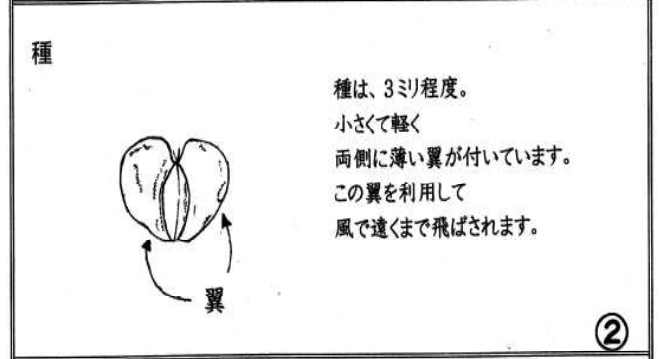 種
種は、3ミリ程度。
小さくて軽く
両側に薄い翼が付いています。
この翼を利用して
風で遠くまで飛ばされます。
翼
②